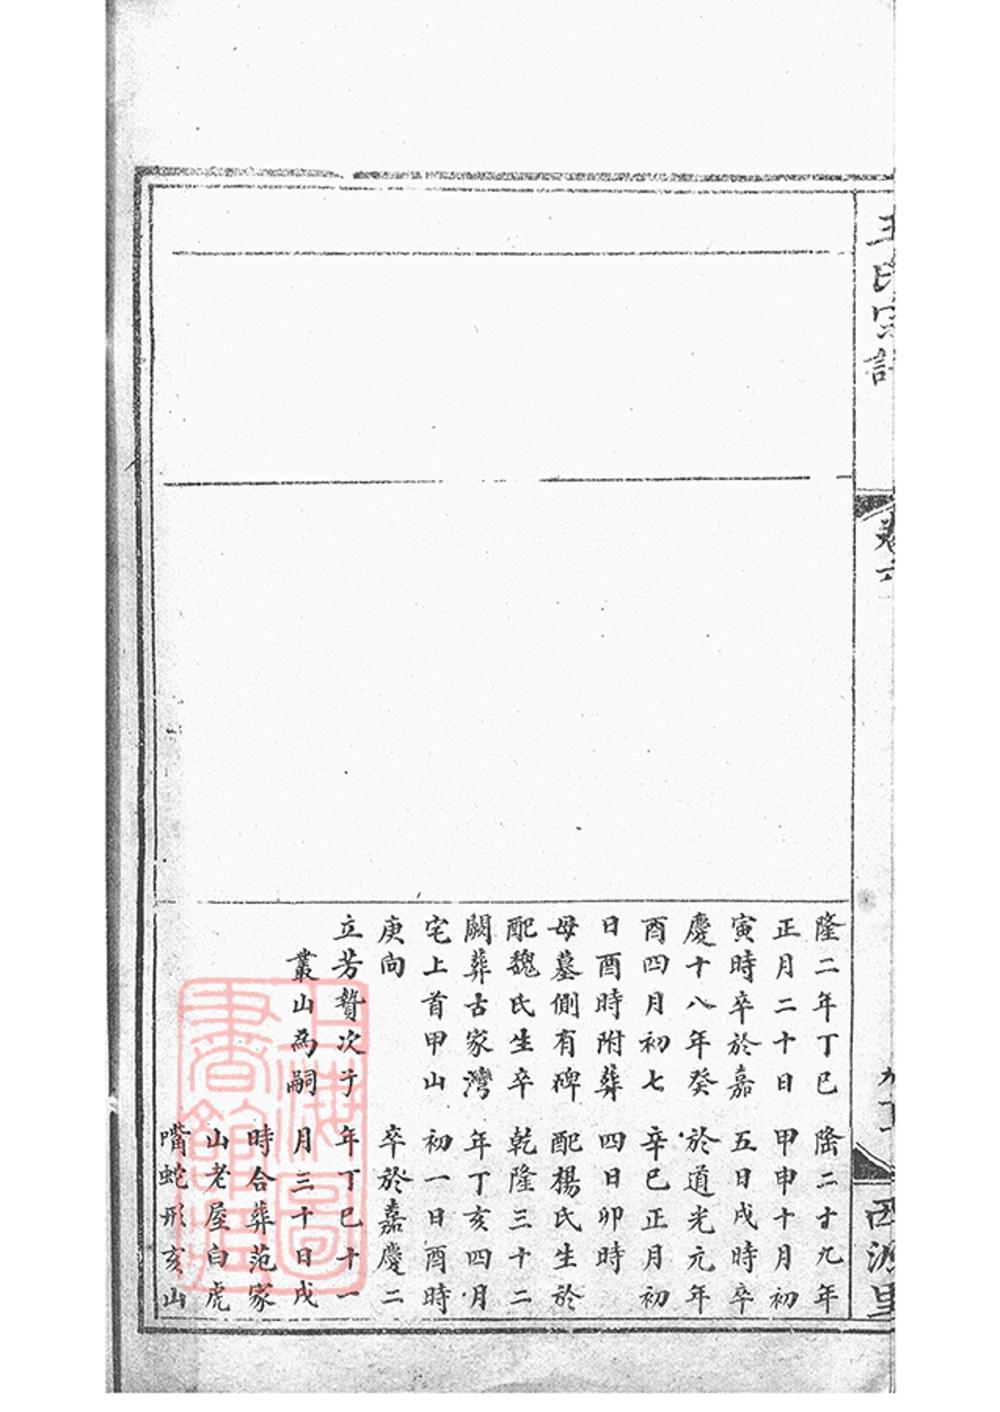 王氏宗譜
卷六
西源里
隆二年丁巳
正月二十日
寅時卒於嘉
慶十八年癸
酉四月初七
日酉時附葬
母墓側有碑
配魏氏生卒
闕葬古家灣
宅上首甲山
庚向
立芳贅次子
叢山為嗣
隆二十九年
甲申十月初
五日戌時卒
於道光元年
辛巳正月初
四日卯時
配楊氏生於
乾隆三十二
年丁亥四月
初一日酉時
卒於嘉慶二
年丁巳十一
月三十日戌
時合葬范家
山老屋白虎
嘴蛇形亥山
上海圖
書館藏